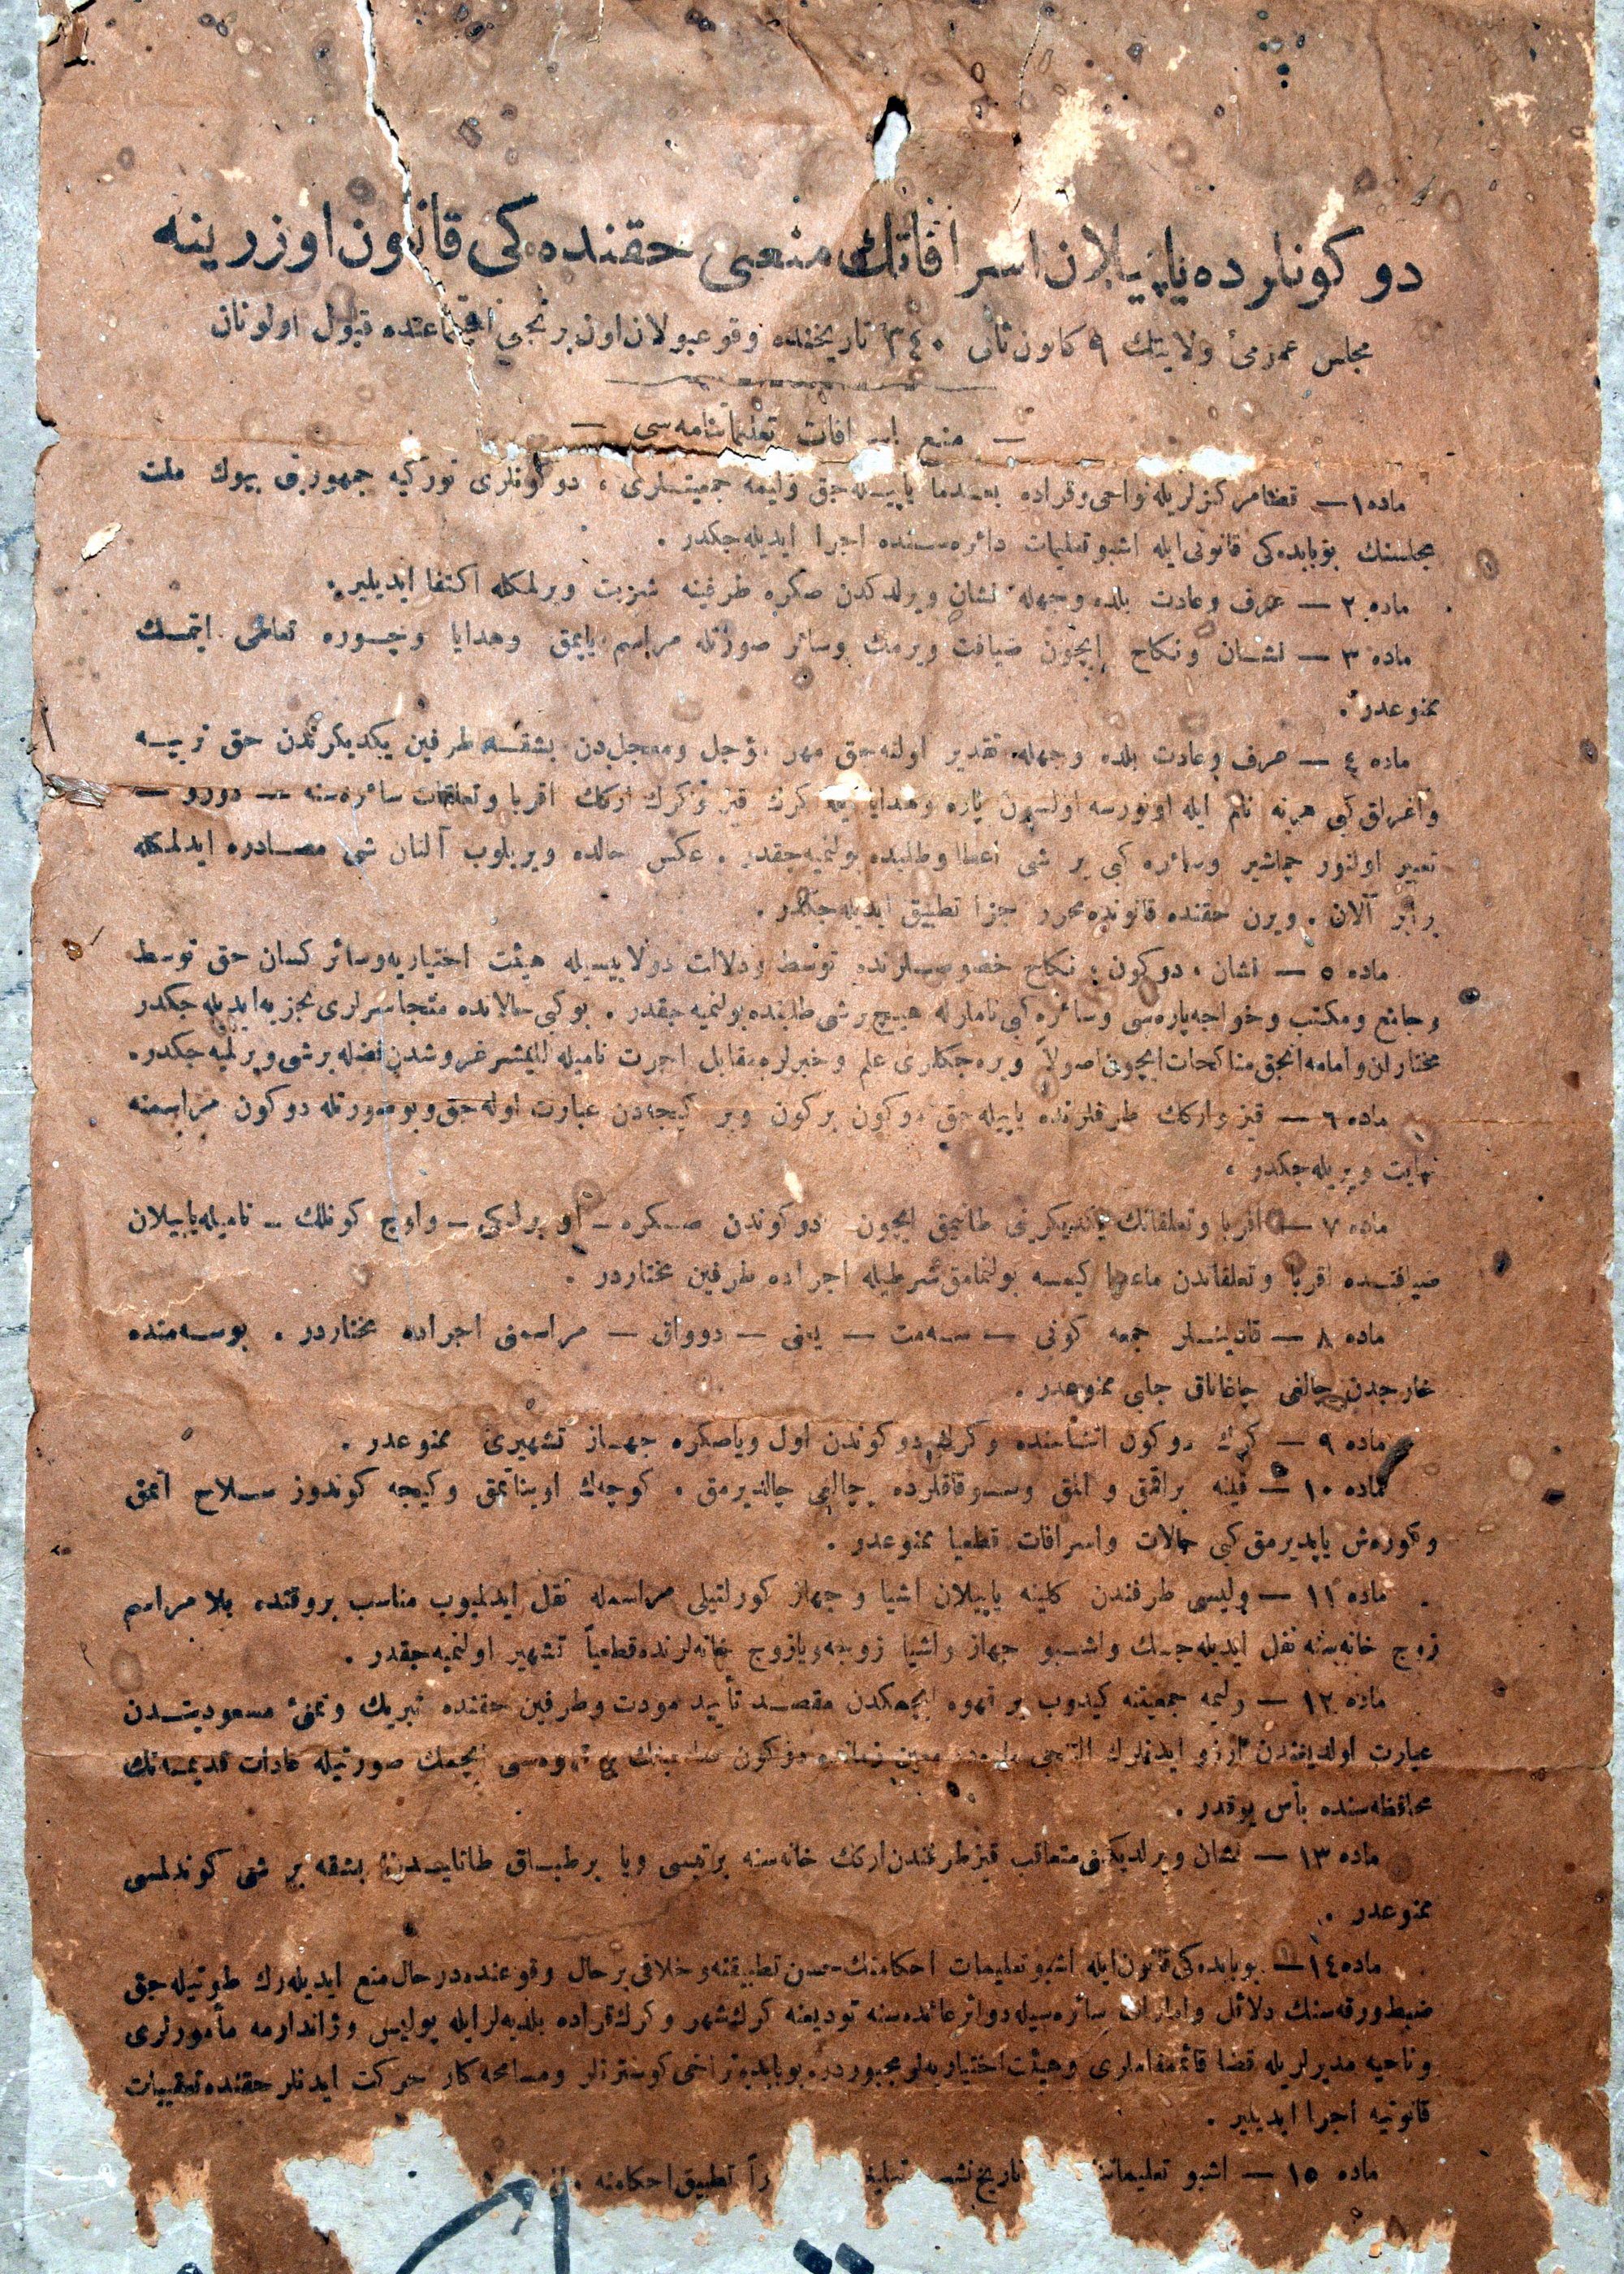 دوكونلرده ياپيلان اسرافاتك منعى حقنده كى قانون اوزرينه
مجلس عمومئ ولايتك ٩ كانون ثانى ٣٤٠ تاريخنده وقوعبولان اون برنجى اجتماعنده قبول اولونان
— منع اسرافات تعليماتنامه سى —
ماده ١ — قضا مركزلريله نواحى وقراده بعدما ياپيله جق وليمه جمعيتلرى ، دوكونلرى توركيه جمهوريتى بيوك ملت
مجلسنك بوبابده كى قانونى ايله اشبو تعليمات دائره سنده اجرا ايديله جكدر .
ماده ٢ — عرف وعادت بلده وجهله نشان ويرلدكدن صكره طرفينه شربت ويرلمكله اكتفا ايديلير .
ماده ٣ — نشان ونكاح ايچون ضيافت ويرمك وسائر صورتله مراسم ياپمق وهدايا وچوره تعاطى ايتمك
ممنوعدر .
ماده ٤ — عرف وعادت بلده وجهله تقدير اولنه جق مهر مؤجل ومعجل دن بشقه طرفين يكديكرندن حق
واغرلق كبى هرنه نام ايله اولورسه اولسون پاره وهدايا ايله كرك قيز وكرك اركك اقربا وتعلقات سائره سنه — دورو —
تعبير اولنور چماشير وسائره كبى بر شى اعطا وطلبده بولنميه جقدر . عكس حالده ويريلوب آلنان شى مصادره ايدلمكله
برابر آلان . ويرن حقنده قانونده محرر جزا تطبيق ايديله جكدر .
ماده ٥ — نشان ، دوكون ، نكاح خصوصلرنده توسط ودلالت دولاييسيله هيئت اختياريه وسائر كسان حق توسط
وجامع ومكتب وخواجه پاره سى وسائره كبى نامارله هيچ برشى طلبنده بولنميه جقدر . بوكبى حالاتده متجاسرلرى تجزيه ايديله جكدر
مختاران وامامه انجق مناكحات ايچون اصولاً ويره جكلرى علم وخبرلره مقابل اجرت ناميله يكرمشر غروشدن فضله برشى ويرلميه جكدر .
ماده ٦ — قيز واركك طرفلرنده ياپيله جق دوكون بركون وبر كيجه دن عبارت اوله جق وبوصورتله دوكون مراسمنه
نهايت ويريله جكدر .
ماده ٧ — اقربا وتعلقاتك يكديكرينى طانيمق ايچون دوكوندن صكره — — واوچ كونلك — ناميله ياپيلان
ضيافتده اقربا وتعلقاتدن ماعدا كيمسه بولنمامق شرطيله اجراده طرفين مختاردر .
ماده ٨ — قادينلر جمعه كونى — سمت — يعنى — دوواق — مراسمنى اجراده مختاردر . بوسمتده
خارجدن چالغى چاغاناق جلبى ممنوعدر .
ماده ٩ — كرك دوكون اثناسنده وكرك دوكوندن اول وياصكره جهاز تشهيرى ممنوعدر .
ماده ١٠ — قينه براقمق و المق وسوقاقلرده چالغى چالديرمق . كوچك اويناتمق وكيجه كوندوز سلاح آتمق
وكورش ياپديرمق كبى حالات واسرافات قطعيا ممنوعدر .
ماده ١١ — وليسى طرفندن كلينه ياپيلان اشيا و جهاز كورلتيلى مراسمله نقل ايدلميوب مناسب بروقتده بلا مراسم
زوج خانه سنه نقل ايديله جك واشبو جهاز واشيا زوجه ويازوج خانه لرنده قطعياً تشهير اولنميه جقدر .
ماده ١٢ — وليمه جمعيتنه كيدوب بر قهوه ايچمكدن مقصد تأييد مودت وطرفين حقنده تبريك وتمنئ مسعوديتدن
عبارت اولديغندن آرزو ايدنلرك معين زمانده دوكون صاحبنك بر قهوه سى ايچمك صورتيله عادات قديمه نك
محافظه سنده بأس يوقدر .
ماده ١٣ — نشان ويرلديكنى متعاقب قيز طرفندن اركك خانه سنه برتپسى ويا برطباق طاتليدن بشقه بر شى كوندلمسى
ممنوعدر .
ماده ١٤ — بوبابده كى قانون ايله اشبو تعليمات احكامنك حسن تطبيقنه وخلافى برحال وقوعنده درحال منع ايديله رك طوتيله جق
ضبط ورقه سنك دلائل وامارات سائره سيله دوائر عائده سنه توديعنه كرك شهر وكرك قراده بلديه لر ايله پوليس وژاندارمه مأمورلرى
وناحيه مديرلريله قضا قائمقاملرى وهيئت اختياريه لر مجبوردر . بوبابده تراخى كوسترنلر ومسامحه كار حركت ايدنلر حقنده تعقيبات
قانونيه اجرا ايديلير .
ماده ١٥ — اشبو تاريخ نشر تطبيق احكامنه